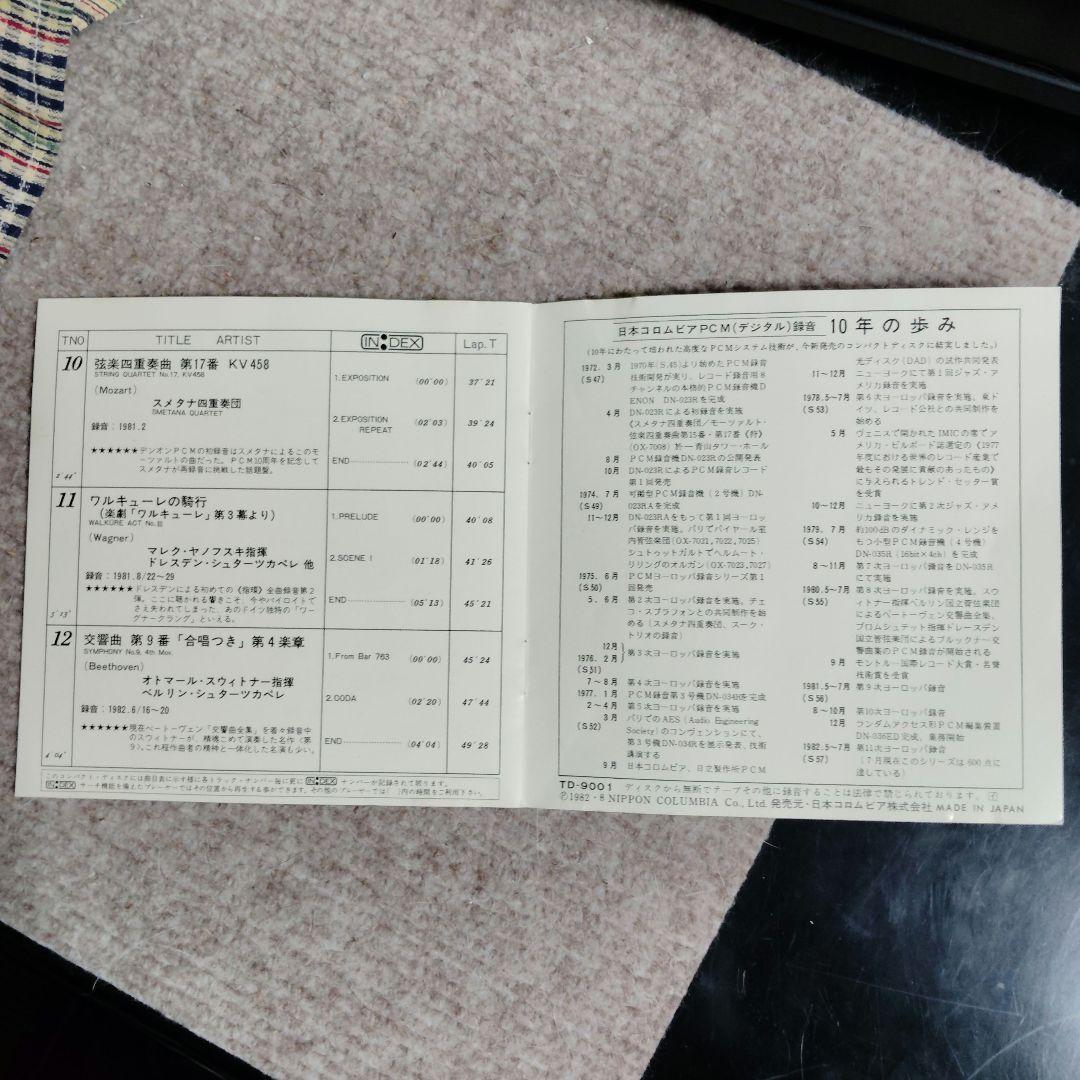 TNO TITLE ARTIST INDEX Lap. T
10 弦楽四重奏曲 第17番 KV458
STRING QUARTET No.17, KV458
(Mozart)
スメタナ四重奏団
SMETANA QUARTET
録音：1981.2
★★★★★★デンオンPCMの初録音はスメタナによるこのモ
ーツァルトの曲だった。PCM10周年を記念して
スメタナが再録音に挑戦した話題盤。
2′44″
1. EXPOSITION (00′00) 37′21
2. EXPOSITION REPEAT (02′03) 39′24
END (02′44) 40′05
11 ワルキューレの騎行
(楽劇「ワルキューレ」第3幕より)
WALKÜRE ACT No.III
(Wagner)
マレク・ヤノフスキ指揮
ドレスデン・シュターツカペレ 他
録音：1981.8/22〜29
★★★★★★ドレスデンによる初めての《指環》全曲録音第2
弾。ここに聴かれる響きこそ、今やバイロイトで
さえ失われてしまった、あのドイツ独特の「ワー
グナークラング」といえる。
5′13″
1. PRELUDE (00′00) 40′08
2. SCENE I (01′18) 41′26
END (05′13) 45′21
12 交響曲 第9番「合唱つき」第4楽章
SYMPHONY No.9, 4th Mov.
(Beethoven)
オトマール・スウィトナー指揮
ベルリン・シュターツカペレ
録音：1982.6/16〜20
★★★★★★現在ベートーヴェン「交響曲全集」を着々録音中
のスウィトナーが、精魂こめて演奏した名作〈第
9〉、これ程作曲者の精神と一体化した名演も少い。
4′04″
1. From Bar 763 (00′00) 45′24
2. CODA (02′20) 47′44
END (04′04) 49′28
このコンパクト・ディスクには曲目表に示す様に各トラック・ナンバー毎に更に INDEX ナンバーが記録されて居ります。
INDEX サーチ機能を備えたプレーヤーではその位置から再生する事ができます。その他のプレーヤーでは( )内の時間をご利用下さい。
日本コロムビアPCM(デジタル)録音 10年の歩み
(10年にわたって培われた高度なPCMシステム技術が、今新発売のコンパクトディスクに結実しました。)
1972. 3月 1970年(S.45)より始めたPCM録音
(S47) 技術開発が実り、レコード録音用8
チャンネルの本格的PCM録音機D
ENON DN-023Rを完成
4月 DN-023Rによる初録音を実施
《スメタナ四重奏団／モーツァルト・
弦楽四重奏曲第15番・第17番《狩》
(OX-7008) 於―青山タワー・ホール
8月 PCM録音機DN-023Rの公開発表
10月 DN-023RによるPCM録音レコード
第1回発売
1974. 7月 可搬型PCM録音機(2号機)DN-
(S49) 023RAを完成
11〜12月 DN-023RAをもって第1回ヨーロッ
パ録音を実施。パリでパイヤール室
内管弦楽団(OX-7021, 7022, 7025)
シュトゥットガルトでヘルムート・
リリングのオルガン(OX-7023, 7027)
1975. 6月 PCMヨーロッパ録音シリーズ第1
(S50) 回発売
5. 6月 第2次ヨーロッパ録音を実施、チェ
コ・スプラフォンとの共同制作を始
める(スメタナ四重奏団、スーク・
トリオの録音)
12月
1976. 2月 第3次ヨーロッパ録音を実施
(S51)
7〜8月 第4次ヨーロッパ録音を実施
1977. 1月 PCM録音第3号機DN-034Rを完成
2〜4月 第5次ヨーロッパ録音を実施
3月 パリでのAES (Audio Engineering
(S52) Society)のコンヴェンションにて、
第3号機DN-034Rを展示発表、技術
講演する
9月 日本コロムビア、日立製作所PCM
光ディスク(DAD)の試作共同発表
11〜12月 ニューヨークにて第1回ジャズ・ア
メリカ録音を実施
1978. 5〜7月 第6次ヨーロッパ録音を実施、東ド
(S53) イツ、レコード公社との共同制作を
始める
5月 ヴェニスで開かれたIMICの席でア
メリカ・ビルボード誌選定の《1977
年度における世界のレコード産業で
最もその発展に貢献のあったもの》
に与えられるトレンド・セッター賞
を受賞
10〜12月 ニューヨークに第2次ジャズ・アメ
リカ録音を実施
1979. 7月 約100dBのダイナミック・レンジを
(S54) もつ小型PCM録音機(4号機)
DN-035R (16bit×4ch)を完成
8〜11月 第7次ヨーロッパ録音をDN-035R
にて実施
1980. 5〜7月 第8次ヨーロッパ録音を実施。スウ
(S55) ィトナー指揮ベルリン国立管弦楽団
によるベートーヴェン交響曲全集、
ブロムシュテット指揮ドレースデン
国立管弦楽団によるブルックナー交
響曲集のPCM録音が開始される
9月 モントルー国際レコード大賞・名誉
技術賞を受賞
1981. 5〜7月 第9次ヨーロッパ録音
(S56)
8〜10月 第10次ヨーロッパ録音
12月 ランダムアクセス形PCM編集装置
DN-036ED完成、業務開始
1982. 5〜7月 第11次ヨーロッパ録音
(S57) (7月現在このシリーズは600点に
達している)
TD-9001 ディスクから無断でテープその他に録音することは法律で禁じられております。
Ⓟ1982・8 NIPPON COLUMBIA Co., Ltd. 発売元・日本コロムビア株式会社 MADE IN JAPAN